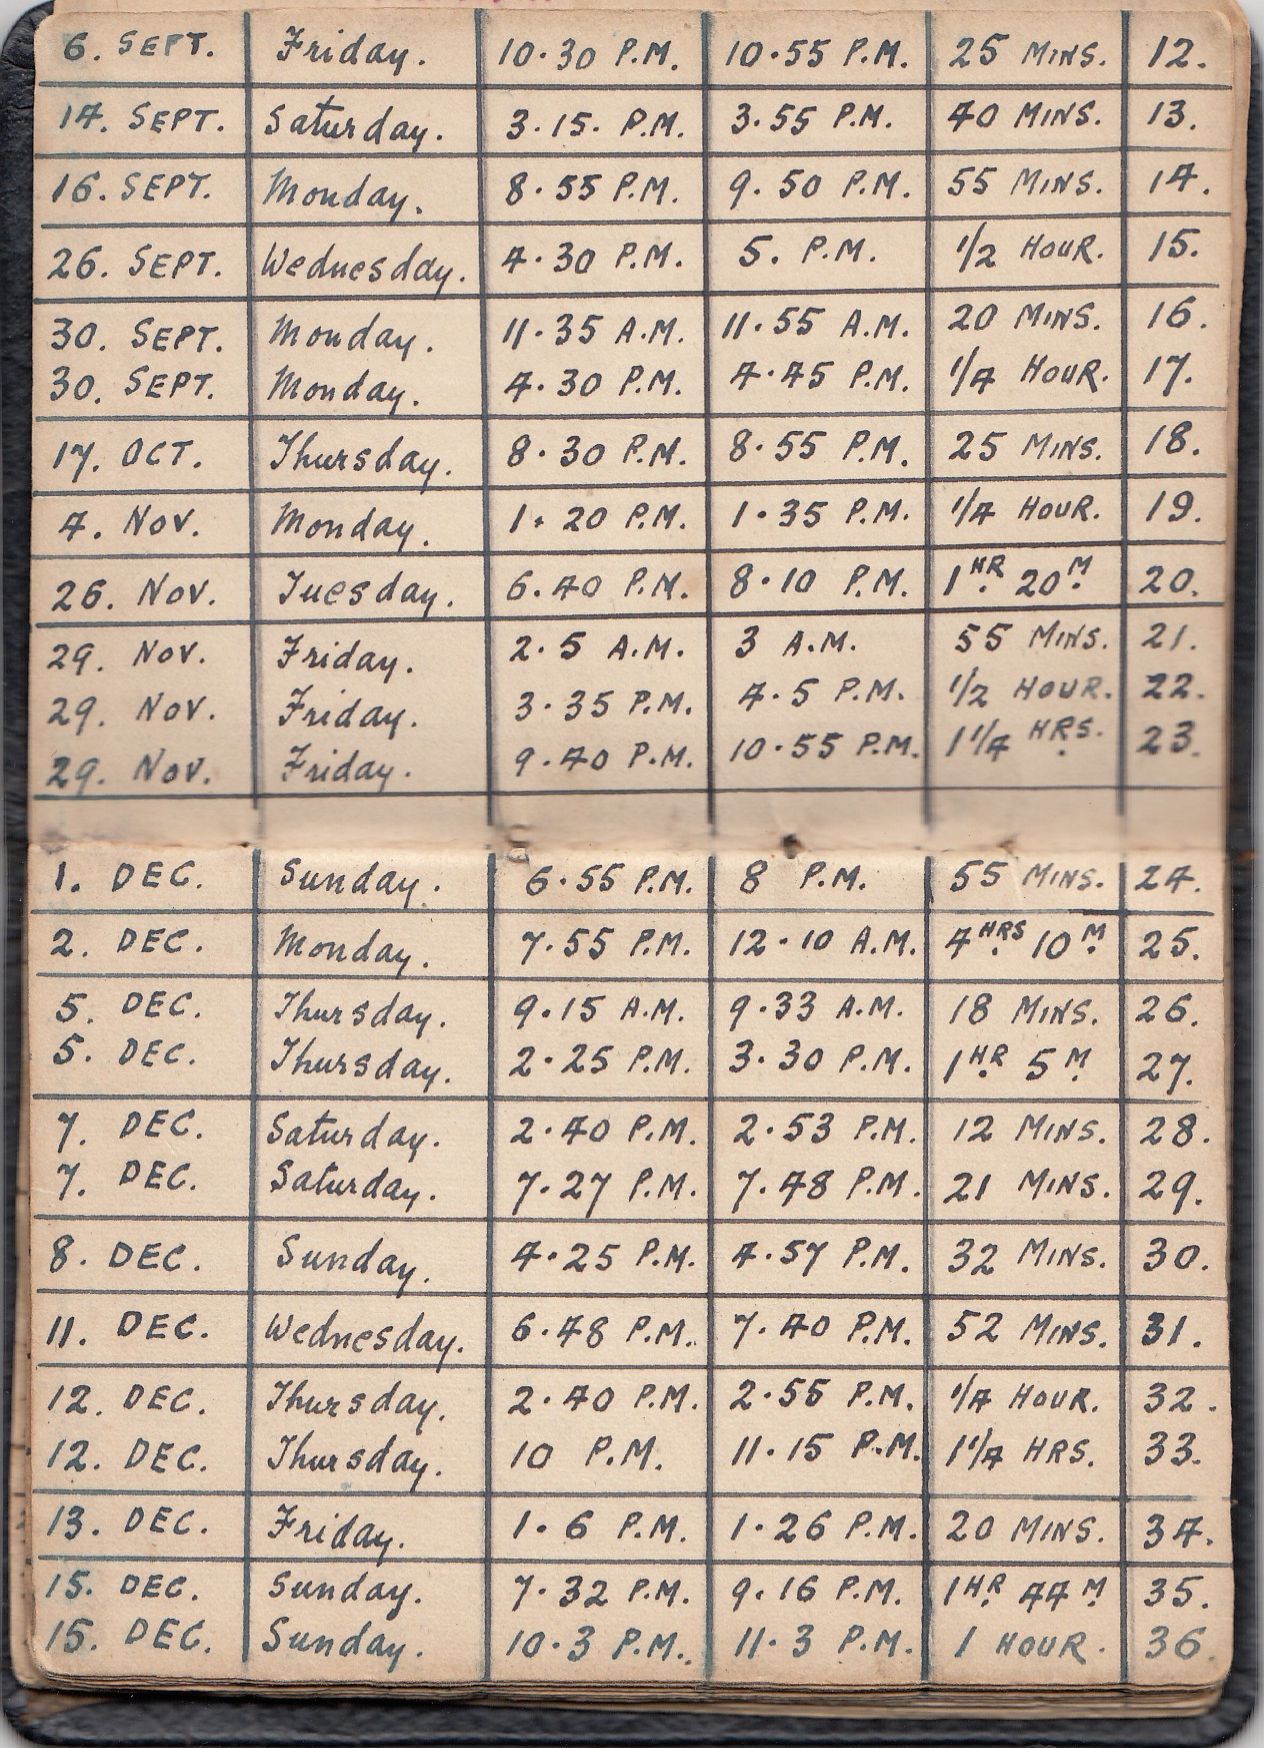 6. SEPT. Friday. 10.30 P.M. 10.55 P.M. 25 MINS. 12.
14. SEPT. Saturday. 3.15. P.M. 3.55 P.M. 40 MINS. 13.
16. SEPT. Monday. 8.55 P.M. 9.50 P.M. 55 MINS. 14.
26. SEPT. Wednesday. 4.30 P.M. 5. P.M. 1/2 HOUR. 15.
30. SEPT. Monday. 11.35 A.M. 11.55 A.M. 20 MINS. 16.
30. SEPT. Monday. 4.30 P.M. 4.45 P.M. 1/4 HOUR. 17.
17. OCT. Thursday. 8.30 P.M. 8.55 P.M. 25 MINS. 18.
4. NOV. Monday. 1.20 P.M. 1.35 P.M. 1/4 HOUR. 19.
26. NOV. Tuesday. 6.40 P.M. 8.10 P.M. 1 HR. 20 M. 20.
29. NOV. Friday. 2.5 A.M. 3 A.M. 55 MINS. 21.
29. NOV. Friday. 3.35 P.M. 4.5 P.M. 1/2 HOUR. 22.
29. NOV. Friday. 9.40 P.M. 10.55 P.M. 1 1/4 HRS. 23.
1. DEC. Sunday. 6.55 P.M. 8 P.M. 55 MINS. 24.
2. DEC. Monday. 7.55 P.M. 12.10 A.M. 4 HRS. 10 M. 25.
5. DEC. Thursday. 9.15 A.M. 9.33 A.M. 18 MINS. 26.
5. DEC. Thursday. 2.25 P.M. 3.30 P.M. 1 HR. 5 M. 27.
7. DEC. Saturday. 2.40 P.M. 2.53 P.M. 12 MINS. 28.
7. DEC. Saturday. 7.27 P.M. 7.48 P.M. 21 MINS. 29.
8. DEC. Sunday. 4.25 P.M. 4.57 P.M. 32 MINS. 30.
11. DEC. Wednesday. 6.48 P.M. 7.40 P.M. 52 MINS. 31.
12. DEC. Thursday. 2.40 P.M. 2.55 P.M. 1/4 HOUR. 32.
12. DEC. Thursday. 10 P.M. 11.15 P.M. 1 1/4 HRS. 33.
13. DEC. Friday. 1.6 P.M. 1.26 P.M. 20 MINS. 34.
15. DEC. Sunday. 7.32 P.M. 9.16 P.M. 1 HR. 44 M. 35.
15. DEC. Sunday. 10.3 P.M. 11.3 P.M. 1 HOUR. 36.